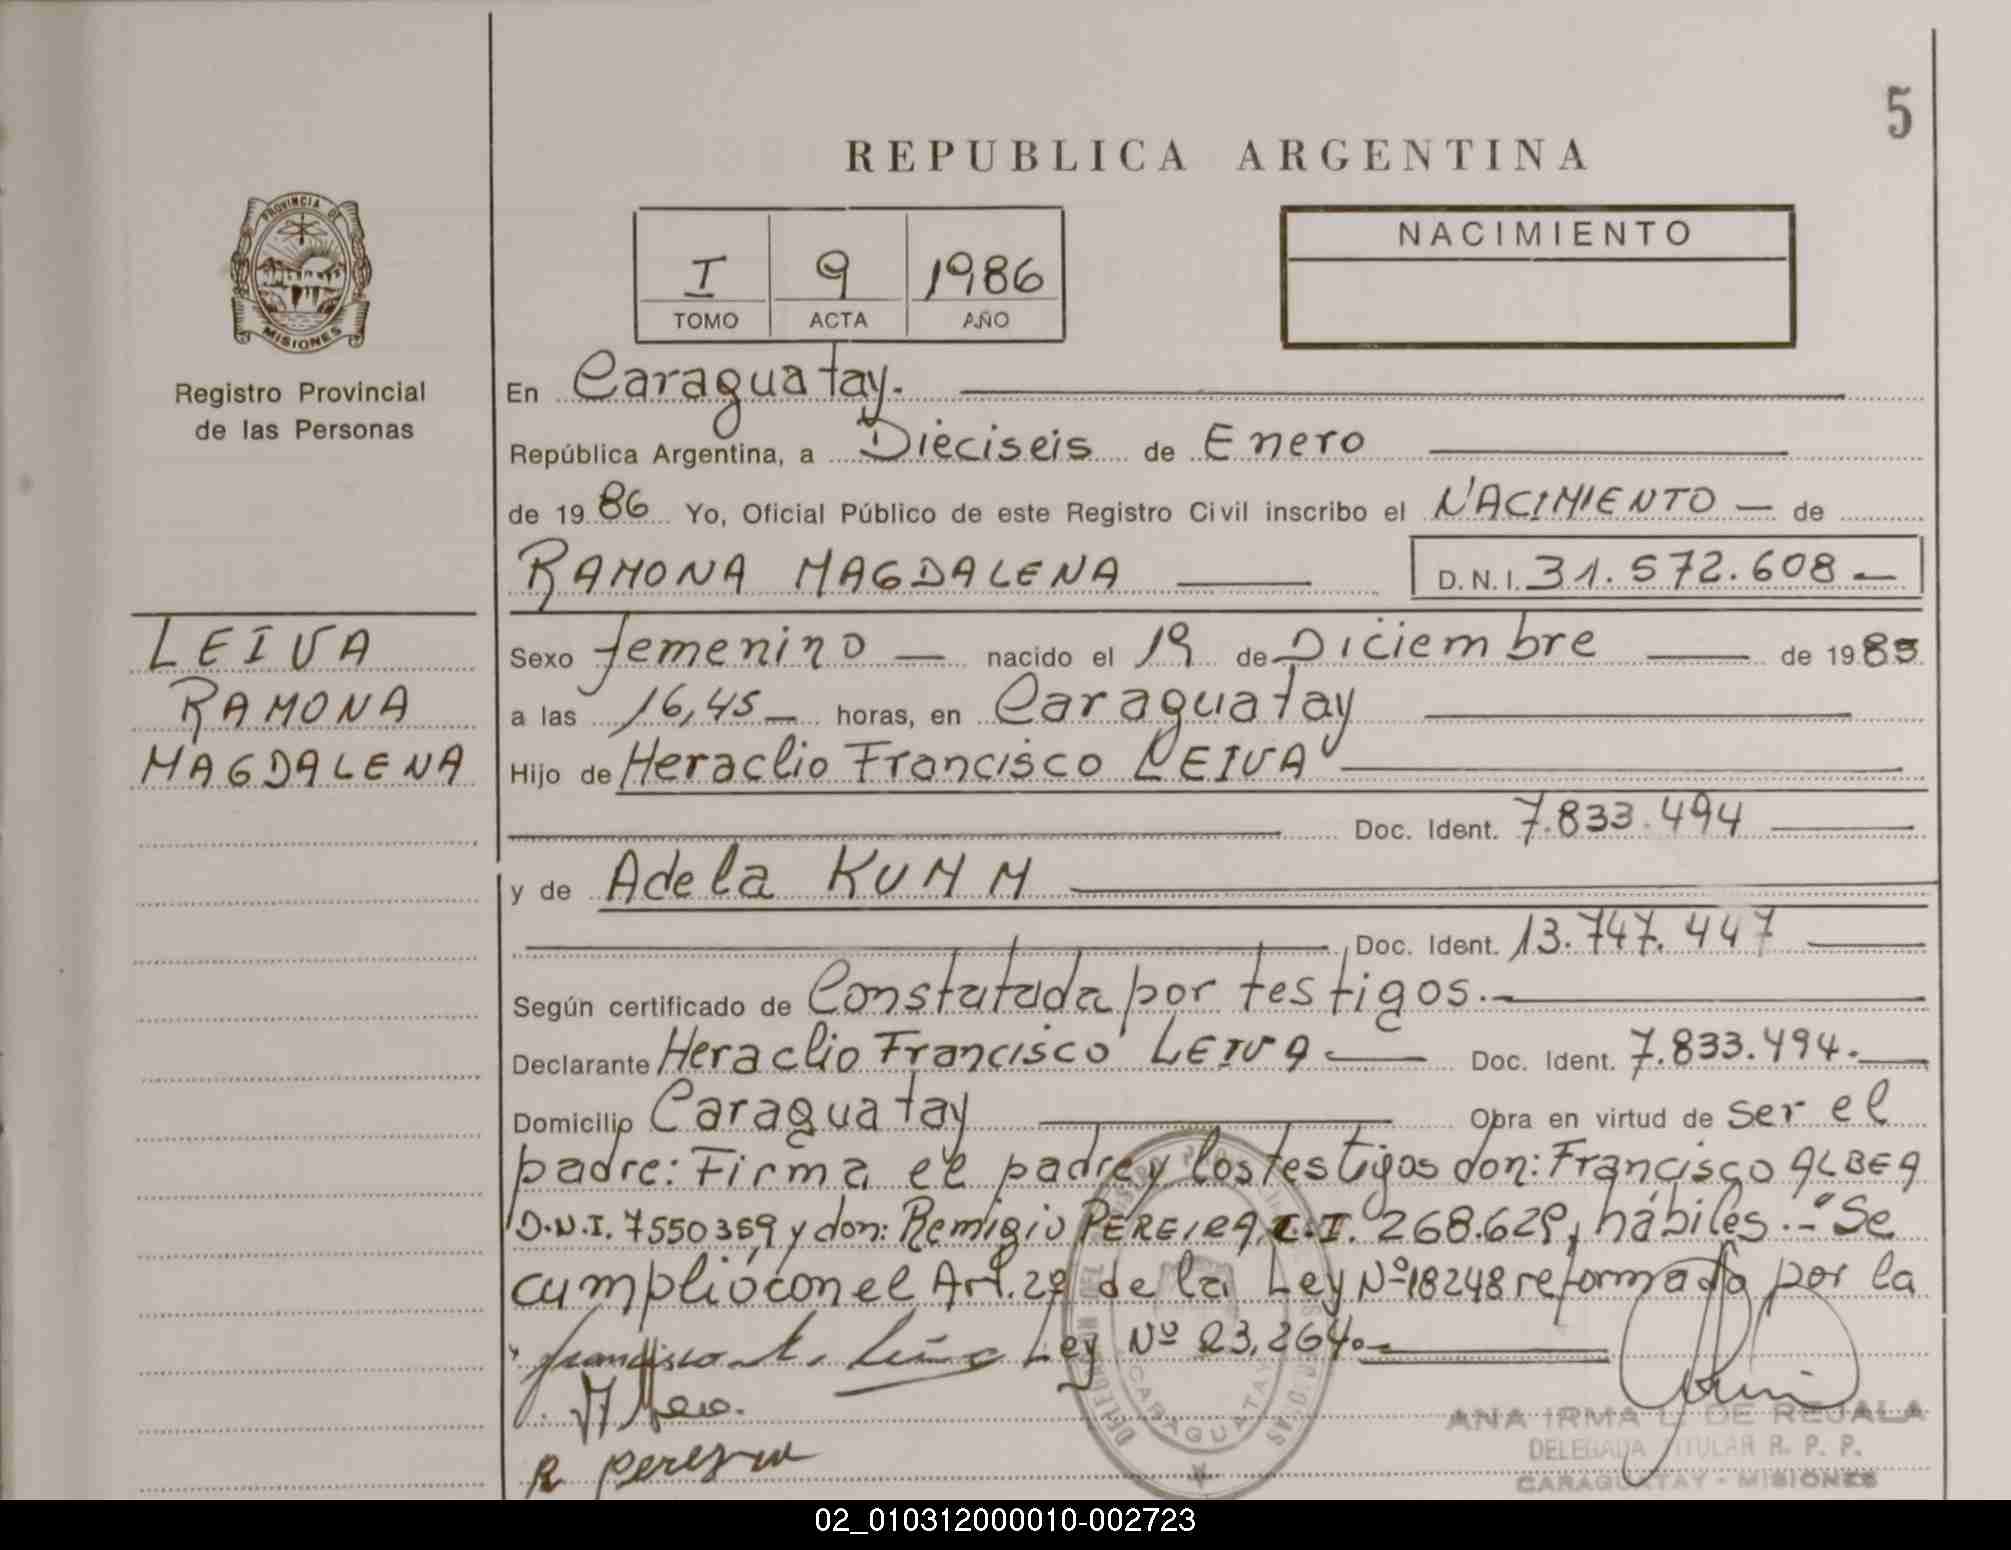 5
REPUBLICA ARGENTINA
PROVINCIA DE
MISIONES
Registro Provincial
de las Personas
I 9 1986
TOMO ACTA AÑO
NACIMIENTO
En Caraguatay.
República Argentina, a Dieciseis de Enero
de 1986 Yo, Oficial Público de este Registro Civil inscribo el NACIMIENTO — de
RAMONA MAGDALENA D.N.I. 31.572.608 —
LEIVA
RAMONA
MAGDALENA
Sexo femenino — nacido el 19 de Diciembre — de 1985
a las 16,45 — horas, en Caraguatay
Hijo de Heraclio Francisco LEIVA
Doc. Ident. 7.833.494
y de Adela KUMM
Doc. Ident. 13.747.447
Según certificado de Constatada por testigos.-
Declarante Heraclio Francisco LEIVA Doc. Ident. 7.833.494.
Domicilio Caraguatay Obra en virtud de ser el
padre: Firma el padre y los testigos don: Francisco ALBEA
D.N.I. 7550359 y don: Remigio PEREIRA, C.I. 268.629, hábiles.- "Se
cumplió con el Art. 2º de la Ley Nº 18248 reformada por la
Ley Nº 23.264.-
R Pereyra
CARAGUATAY
ANA IRMA L. DE REJALA
DELEGADA TITULAR R. P. P.
CARAGUATAY - MISIONES
02_010312000010-002723